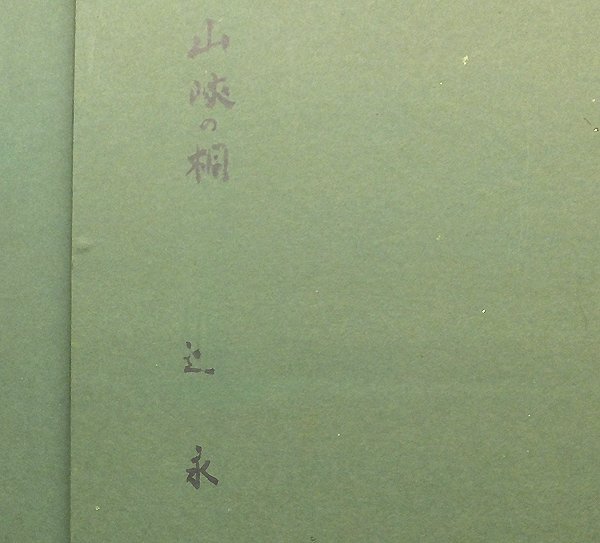 山峡の桐
之永